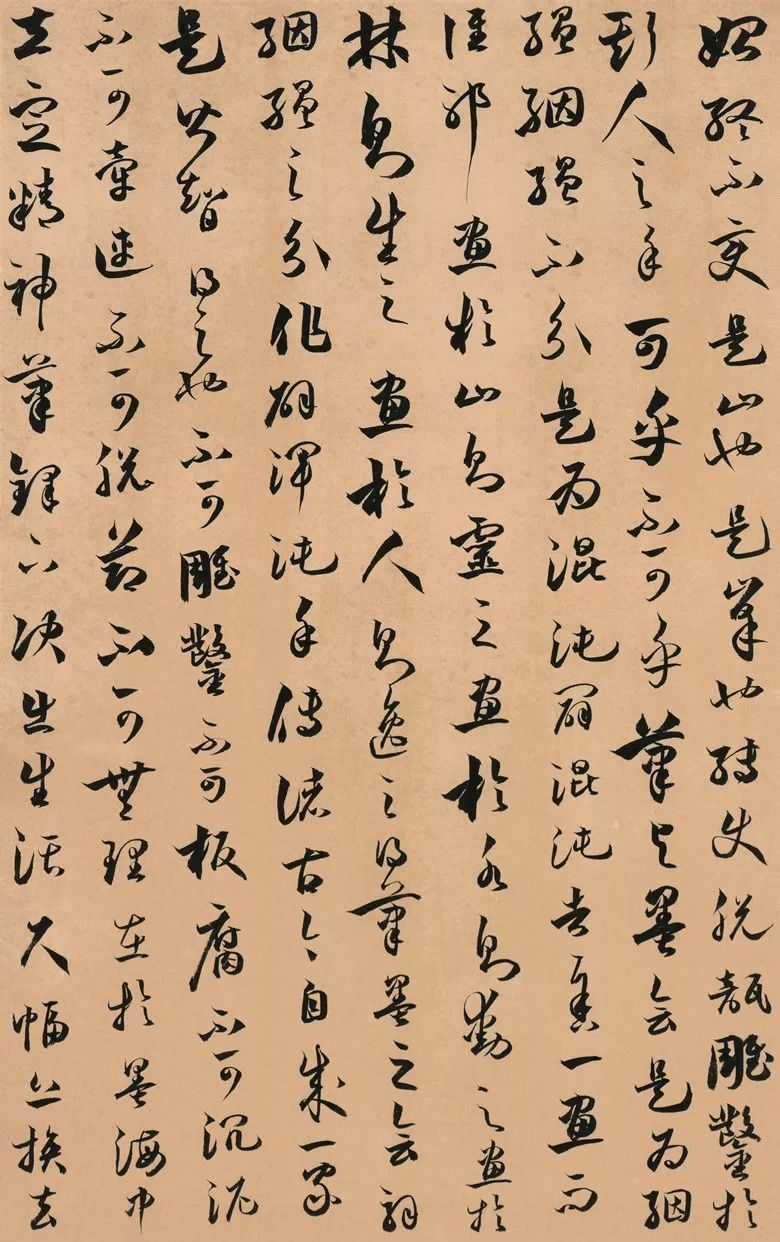 始終不變是山也是峯也轉使脫瓠雕鑿於
斲人之手可乎不可乎筆與墨會是為絪
縕絪縕不分是為混沌闢混沌者舍一畫而
誰耶畫於山則靈之畫於水則動之畫於
林則生之畫於人則逸之得筆墨之會解
絪縕之分作闢渾沌手傳諸古今自成一家
是皆智得之也不可雕鑿不可板腐不可沉泥
不可牽連不可脫節不可無理在於墨海中
立定精神筆鋒下決出生活尺幅上換去